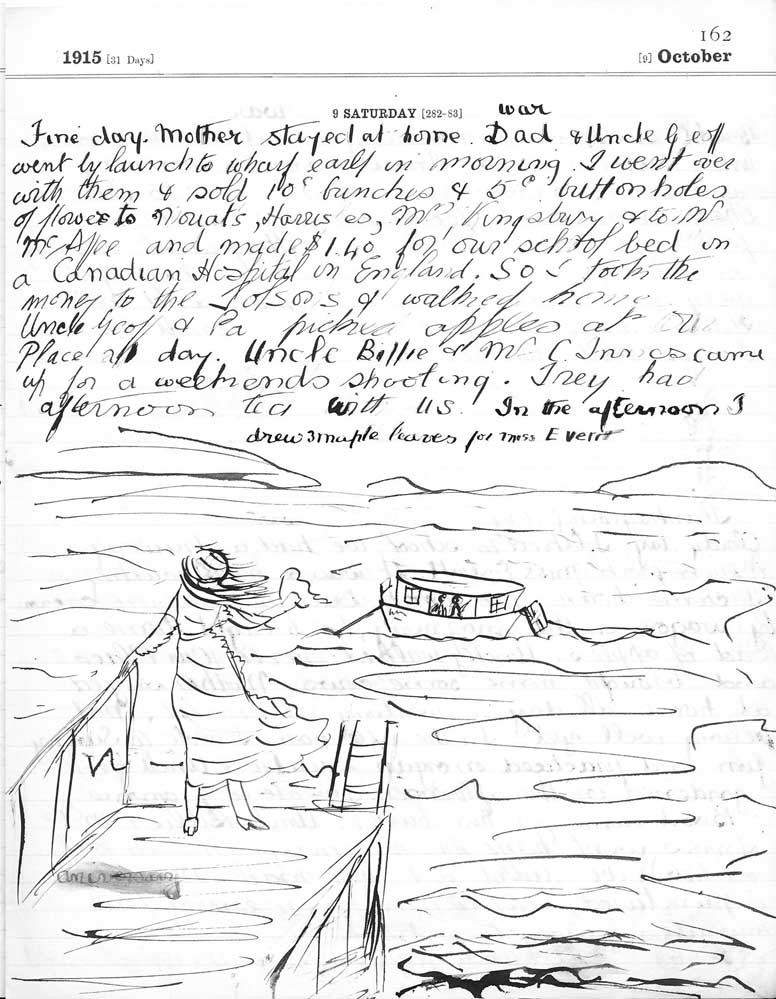 162
1915 [31 Days] [9] October
9 SATURDAY [282-83] war
Fine day. Mother stayed at home. Dad & Uncle Geoff
went by launch to wharf early in morning. I went over
with them & sold 10c bunches & 5c buttonholes
of flowers to Mouats, Harrises, Mrs, Kingsbury & to Mr
McAfee and made $1.40 for our school bed in
a Canadian Hospital in England. So I took the
money to the & walked home
Uncle Geoff & Pa picked apples at
Place all day. Uncle Billie & Mr C. Innes came
up for a weekends shooting. They had
afternoon tea with us. In the afternoon I
drew 3 maple leaves for miss Everitt